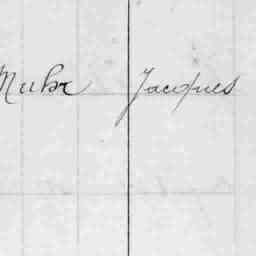 Muhr Jacques